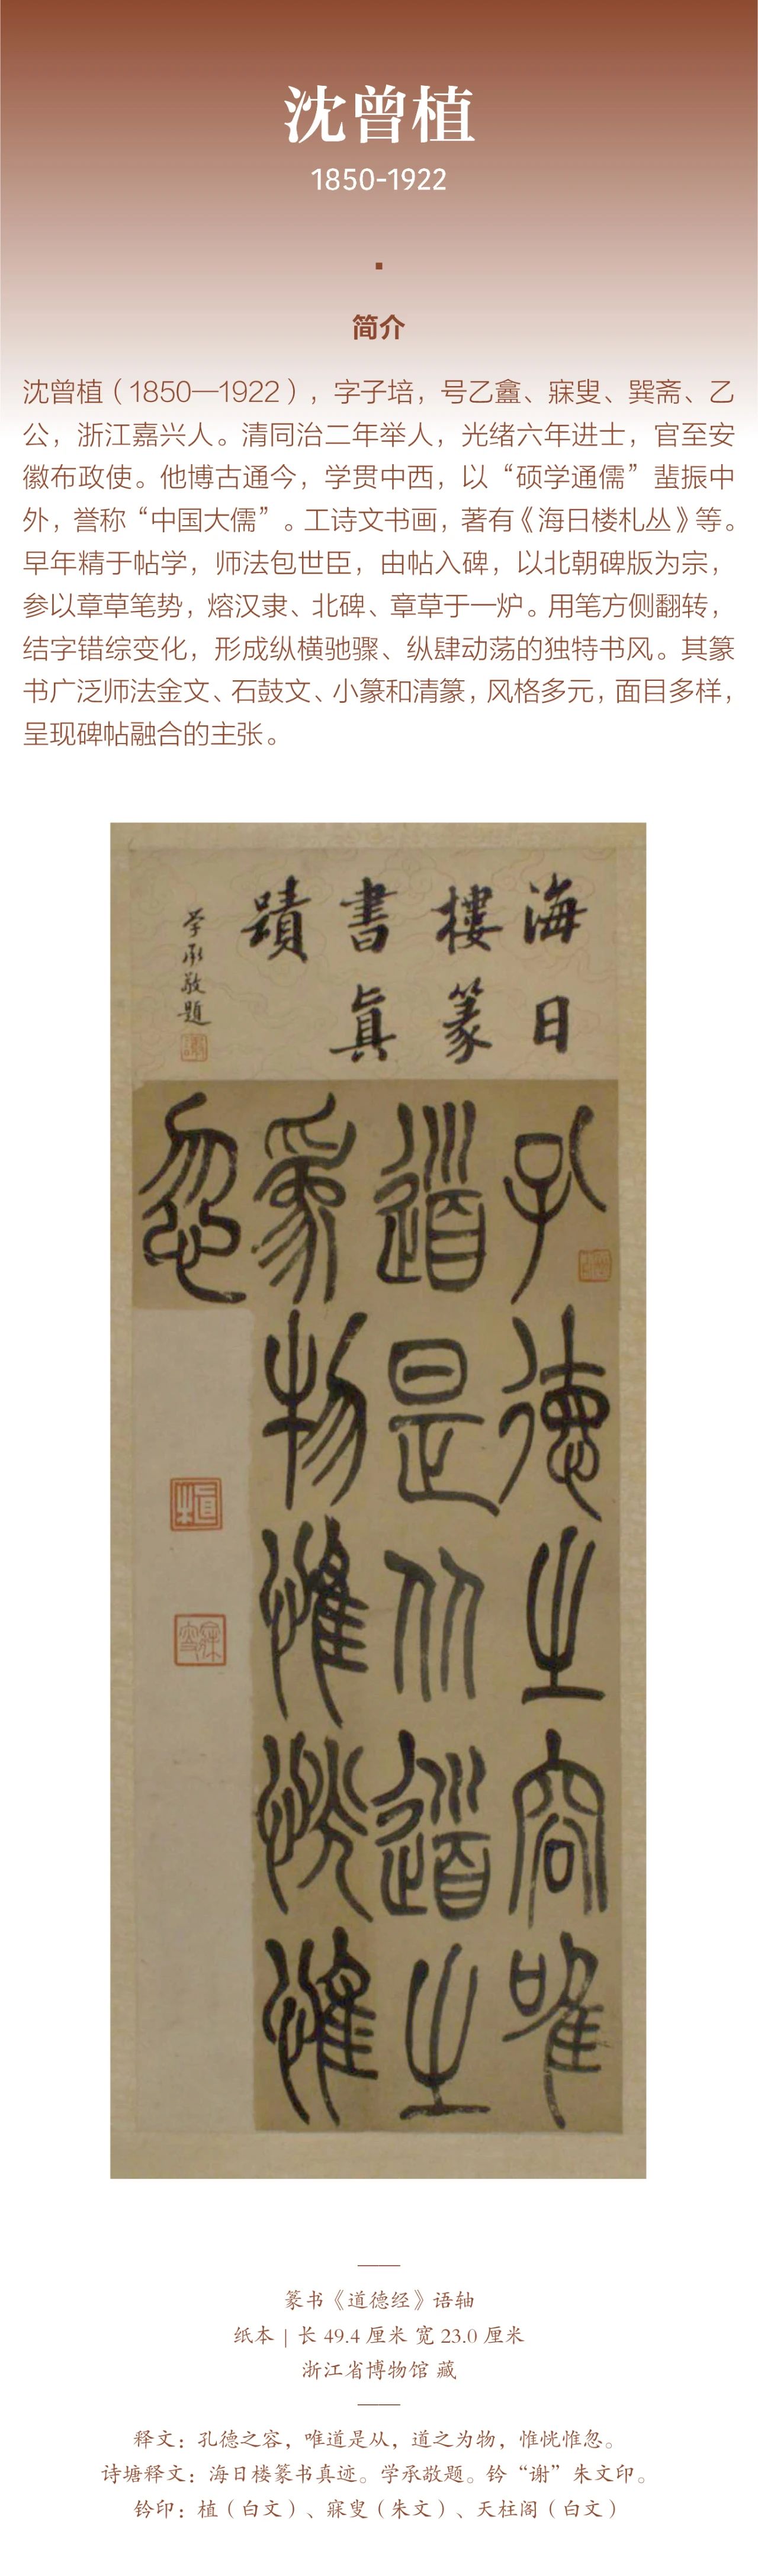 沈曾植
1850-1922
简介
沈曾植（1850—1922），字子培，号乙盦、寐叟、巽斋、乙
公，浙江嘉兴人。清同治二年举人，光绪六年进士，官至安
徽布政使。他博古通今，学贯中西，以“硕学通儒”蜚振中
外，誉称“中国大儒”。工诗文书画，著有《海日楼札丛》等。
早年精于帖学，师法包世臣，由帖入碑，以北朝碑版为宗，
参以章草笔势，熔汉隶、北碑、章草于一炉。用笔方侧翻转，
结字错综变化，形成纵横驰骤、纵肆动荡的独特书风。其篆
书广泛师法金文、石鼓文、小篆和清篆，风格多元，面目多样，
呈现碑帖融合的主张。
海日
樓篆
書真
蹟
学承敬題
孔德之容唯
道是从道之
為物惟恍惟
忽
植
寐叟
——
篆书《道德经》语轴
纸本 | 长 49.4 厘米 宽 23.0 厘米
浙江省博物馆 藏
——
释文：孔德之容，唯道是从，道之为物，惟恍惟忽。
诗塘释文：海日楼篆书真迹。学承敬题。钤“谢”朱文印。
钤印：植（白文）、寐叟（朱文）、天柱阁（白文）